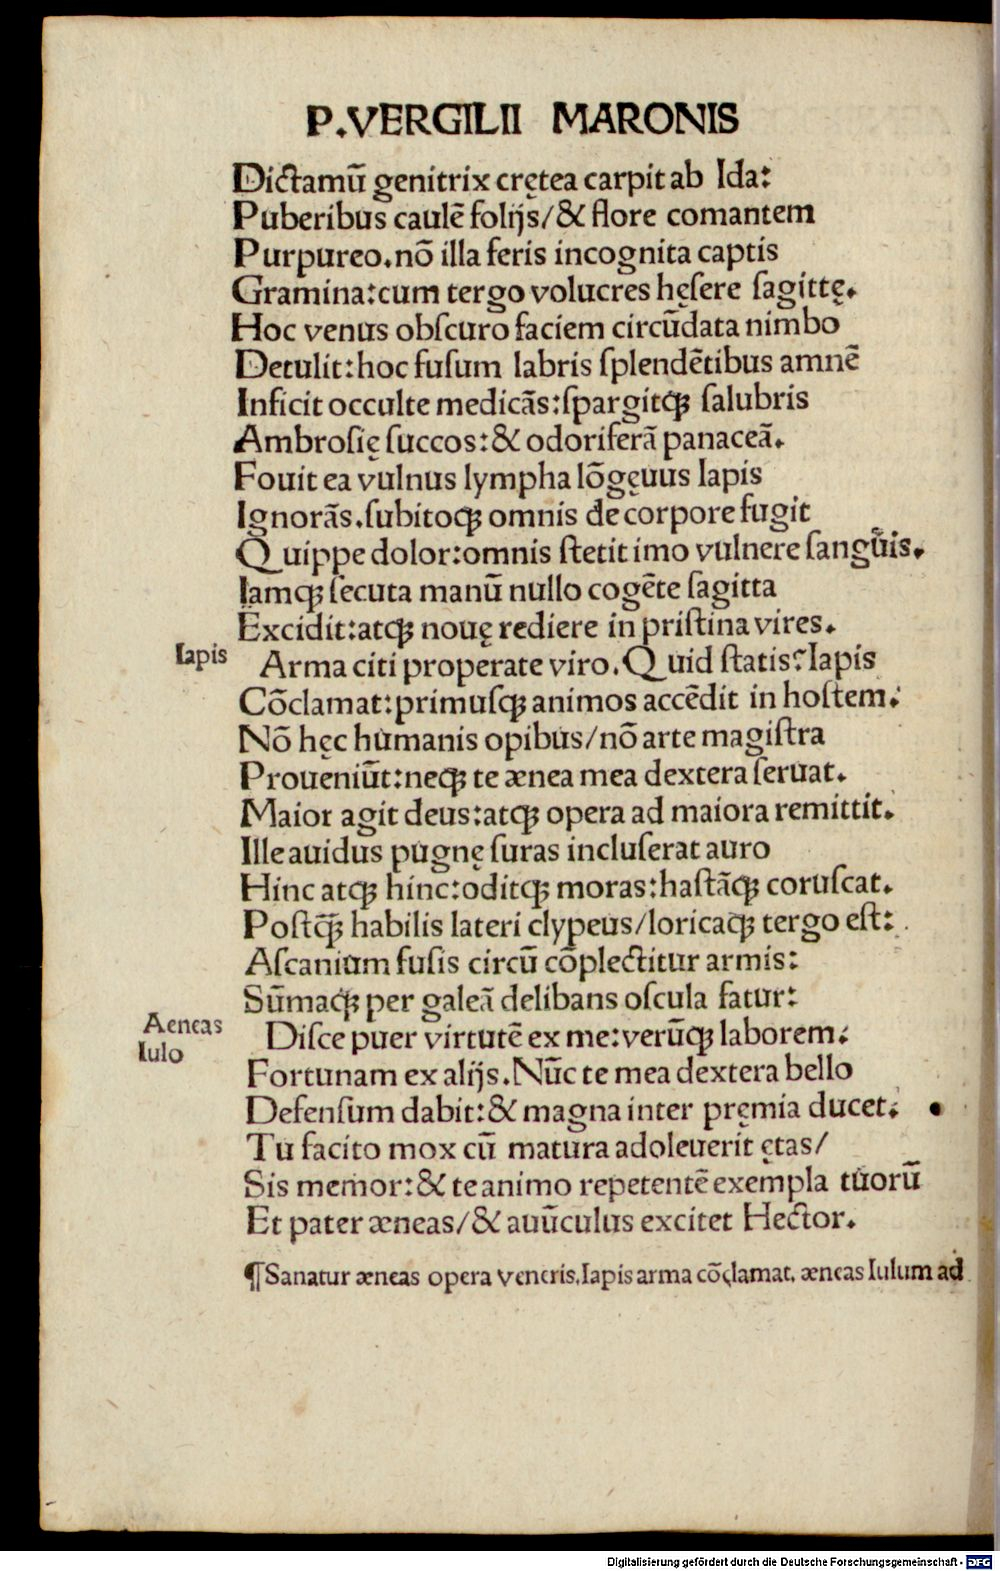 P.VERGILII MARONIS
Dictamū genitrix crętea carpit ab Ida:
Puberibus caulē folijs/& flore comantem
Purpureo.nō illa feris incognita captis
Gramina:cum tergo volucres hęsere sagittę.
Hoc venus obſcuro faciem circūdata nimbo
Detulit:hoc fuſum labris ſplendētibus amnē
Inficit occulte medicās:ſpargitqꝫ ſalubris
Ambroſię ſuccos:& odoriferā panaceā.
Fouit ea vulnus lympha lōgęuus Iapis
Ignorās.ſubitoqꝫ omnis de corpore fugit
Quippe dolor:omnis ſtetit imo vulnere ſangūis.
Iamqꝫ ſecuta manū nullo cogēte ſagitta
Excidit:atqꝫ nouę rediere in priſtina vires.
Iapis
Arma citi properate viro.Quid ſtatis?Iapis
Cōclamat:primuſqꝫ animos accēdit in hoſtem.
Nō hęc humanis opibus/nō arte magiſtra
Proueniūt:neqꝫ te ænea mea dextera ſeruat.
Maior agit deus:atqꝫ opera ad maiora remittit.
Ille auidus pugnę ſuras incluſerat auro
Hinc atqꝫ hinc:oditqꝫ moras:haſtāqꝫ coruſcat.
Poſtqꝫ̄ habilis lateri clypeus/loricaqꝫ tergo eſt:
Aſcanium fuſis circū cōplectitur armis:
Sūmaqꝫ per galeā delibans oſcula fatur:
Aeneas
Iulo
Diſce puer virtutē ex me:verūqꝫ laborem:
Fortunam ex alijs.Nūc te mea dextera bello
Defenſum dabit:& magna inter pręmia ducet:
Tu facito mox cū matura adoleuerit ętas/
Sis memor:& te animo repetentē exempla tuorū
Et pater æneas/& auūculus excitet Hector.
¶Sanatur æneas opera veneris.Iapis arma cōclamat. æneas Iulum ad
Digitalisierung gefördert durch die Deutsche Forschungsgemeinschaft - DFG